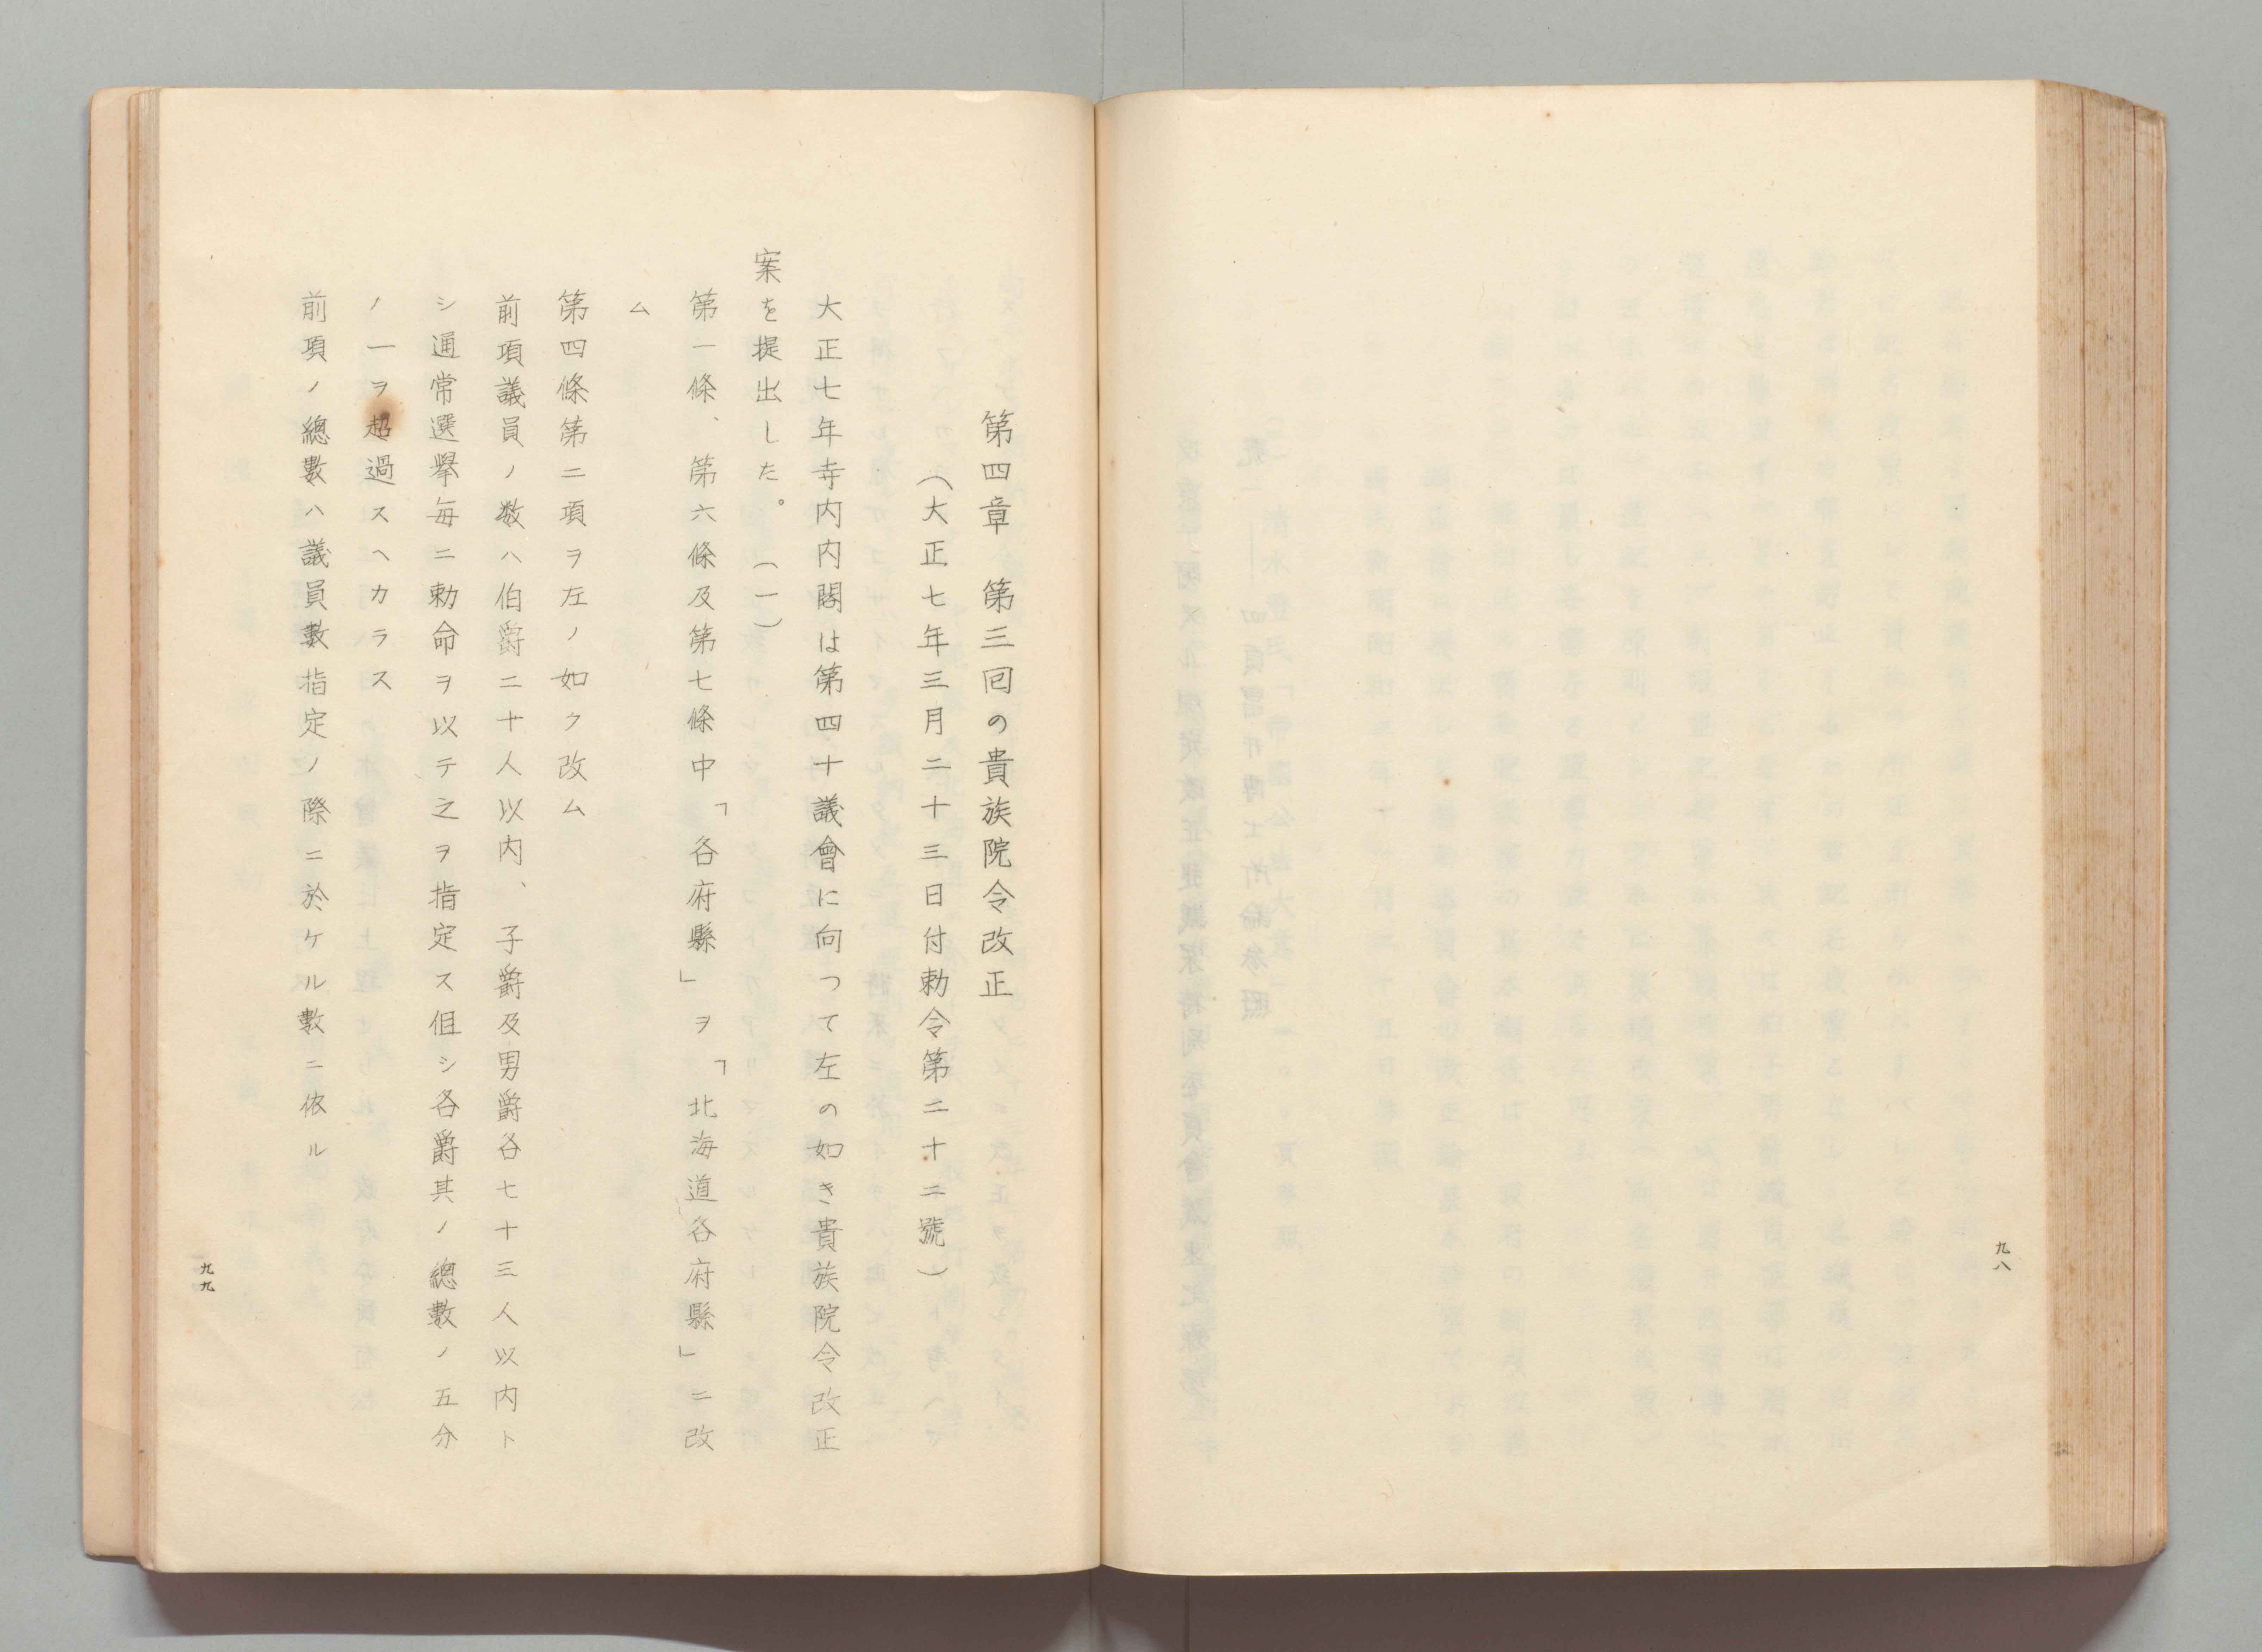 九八
第四章　第三囘の貴族院令改正
（大正七年三月二十三日付勅令第二十二號）
大正七年寺内内閣は第四十議會に向つて左の如き貴族院令改正
案を提出した。（一）
第一條、第六條及第七條中「各府縣」ヲ「北海道各府縣」ニ改
ム
第四條第二項ヲ左ノ如ク改ム
前項議員ノ数ハ伯爵二十人以内、子爵及男爵各七十三人以内ト
シ通常選擧每ニ勅命ヲ以テ之ヲ指定ス但シ各爵其ノ總數ノ五分
ノ一ヲ超過スヘカラス
前項ノ總數ハ議員數指定ノ際ニ於ケル數ニ依ル
九九